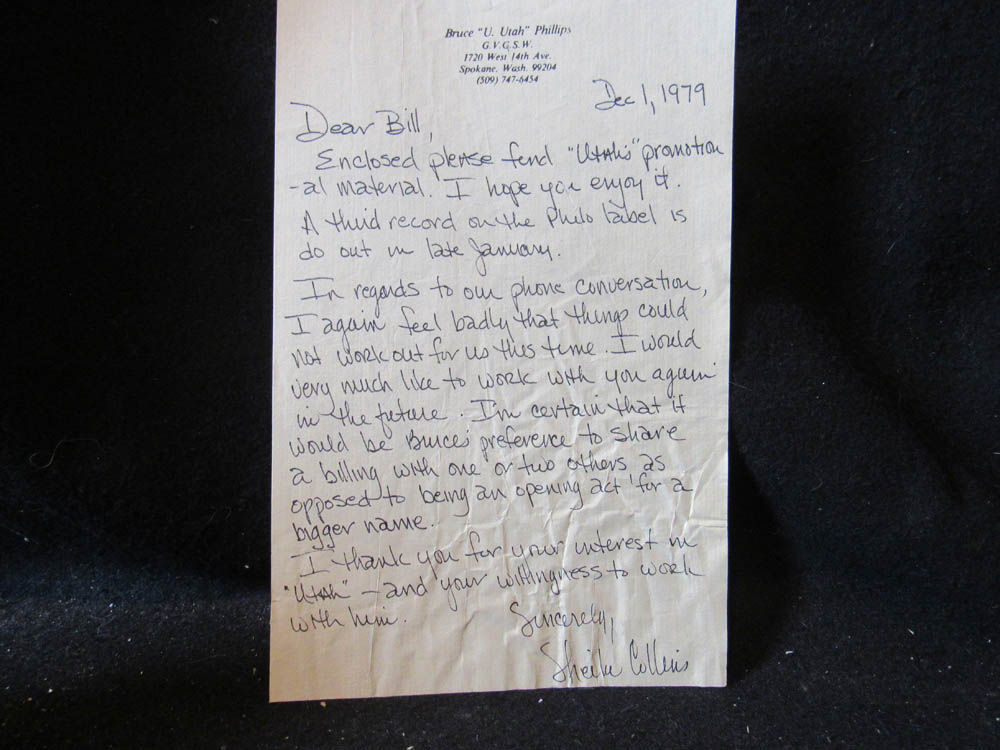 Bruce "U. Utah" Phillips
G.V.G.S.W.
1720 West 14th Ave.
Spokane, Wash. 99204
(509) 747-6454
Dec 1, 1979
Dear Bill,
Enclosed please find "Utah's" promotion
-al material. I hope you enjoy it.
A third record on the Philo label is
do out in late January.
In regards to our phone conversation,
I again feel badly that things could
not work out for us this time. I would
very much like to work with you again
in the future. I'm certain that it
would be Bruce's preference to share
a billing with one or two others as
opposed to being an opening act for a
bigger name.
I thank you for your interest in
"Utah" - and your willingness to work
with him.
Sincerely,
Sheila Collins